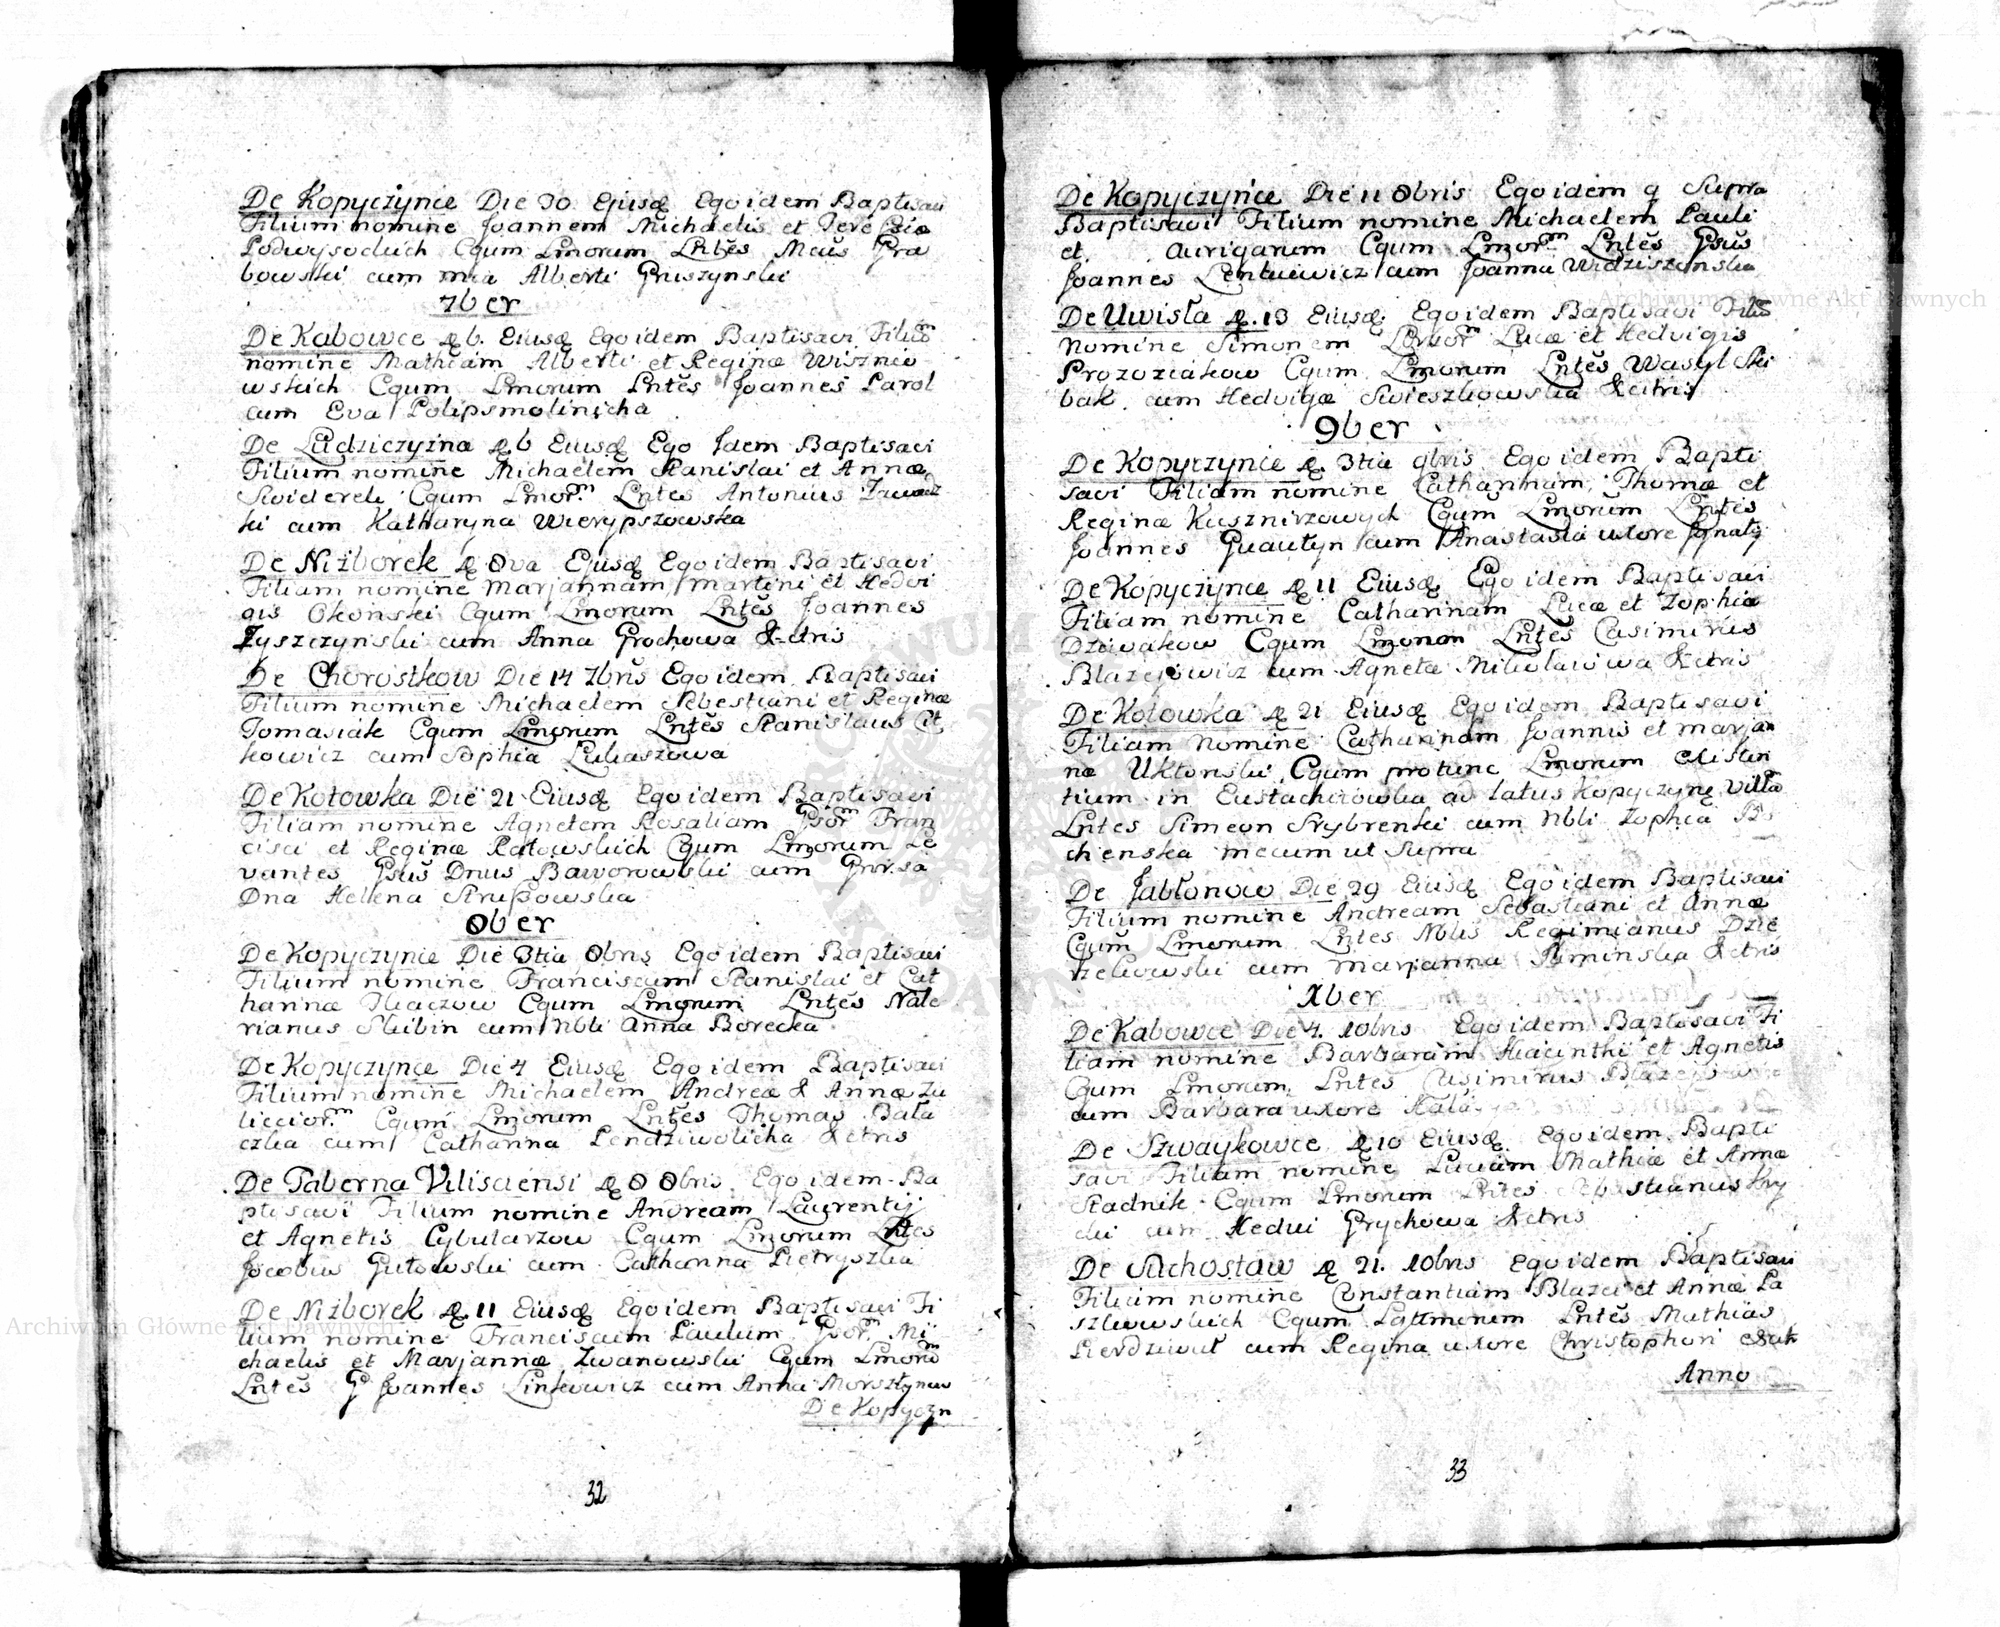 De Kopyczynce Die 30 Ejusq Ego idem Baptisavi
Filium nomine Joannem Michaelis et Teressiæ
Podwysockich Cqum Lmorum Lntĕs Mcus Gra
bowski cum mia Alberti Gruszynski
7ber
De Kabowce D 6. Eiusq Ego idem Baptisavi Filiū
nomine Mathiam Alberti et Reginæ Wisznio
wskich Cqum Lmorum Lntĕs Joannes Parol
cum Eva Polipsmolinicha
De Ludziczyzna D 6 Eiusq Ego Idem Baptisavi
Filium nomine Michaelem Stanislai et Annæ
Swiderek Cqum Lmorm Lntes Antonius Zawadz
ki cum Katharyna Wierypszowska
De Niżborek D 8va Ejusq Ego idem Baptisavi
Filiam nomine Marjannam Martini et Hedvi
gis Okonski Cqum Lmorum Lntĕs Joannes
Zyszczynski cum Anna Grochowa & ctris
De Chorostkow Die 14 7bris Ego idem Baptisavi
Filium nomine Michaelem Sebestiani et Reginæ
Tomasiak Cqum Lmorum Lntĕs Stanislaus Cit
kowicz cum Sophia Lukaszowa
De Kotowka Die 21 Eiusq Ego idem Baptisavi
Filiam nomine Agnetem Rosaliam Gsorm Fran
cisci et Reginæ Ratowskich Cqum Lmorum Le
vantes Gsus Dnus Baworowski cum Gnrsa
Dna Hellena Strussowska
8ber
De Kopyczynce Die 3tia 8bris Ego idem Baptisavi
Filium nomine Franciscum Stanislai et Cat
harinæ Tkaczow Cqum Lmorum Lntĕs Vale
rianus Skibin cum Nbli Anna Borecka
De Kopyczynce Die 4 Eiusq Ego idem Baptisavi
Filium nomine Michaelem Andreæ & Annæ Zu
liccior.m Cqum Lmorum Lntĕs Thomas Bała
czka cum Catharina Pendziwolicha & ctris
De Taberna Vilisciensi D 8 8bris Ego idem Ba
ptisavi Filium nomine Andream Laurentij
et Agnetis Cybularzow Cqum Lmorum Lntes
Jacobus Gutowski cum Catharina Pietryszka
De Niżborek D. 11 Eiusq Ego idem Baptisavi Fi
lium nomine Franciscum Paulum Gsorm Mi
chaelis et Marjannæ Zwanowski Cqum Lmorū
Lntĕs G Joannes Linkowicz cum Anna Morsztynow
De Kopyczn
32
De Kopyczyńce Die 11 8bris Ego idem q Supra
Baptisavi Filium nomine Michaelem Pauli
et Aurigarum Cqum Lmorm Lntĕs Gsus
Joannes Lenkiewicz cum Joanna Widziszonska
De Uwisla D. 13 Eiusq Ego idem Baptisavi Filiū
nomine Simonem Lbrorm Lucæ et Hedvigis
Prozoziakow Cqum Lmorum Lntĕs Wasyl Ski
bak cum Hedvigæ Swieszkowska & ctris
9ber
De Kopyczynce D. 3tia 9bris Ego idem Bapti
savi Filiam nomine Catharinam Thomæ et
Reginæ Kusznirzowych Cqum Lmorum Lntes
Joannes Guautyn cum Anastasia uxore Ignatij
De Kopyczynce D 11 Eiusq Ego idem Baptisavi
Filiam nomine Catharinam Lucæ et Zophiæ
Dziwakow Cqum Lmorum Lntĕs Casimirus
Blazejowicz cum Agneta Mikolaiowa & ctris
De Kotowka D 21 Eiusq Ego idem Baptisavi
Filiam Nomine Catharinam Joannis et Marjan
næ Uktonski Cqum protunc Lmorum exi sten
tium in Eustachiowska ad Latus Kopyczync Villa
Lntes Simeon Srybrenki cum Nbli Zophia B
chenska mecum ut Supra
De Jabłonow Die 29 Eiusq Ego idem Baptisavi
Filium nomine Andream Sebastiani et Annæ
Cqum Lmorum Lntes Nblis Regimianus Dzie
rzekowski cum Marjanna Kminska & ctris
Xber
De Kabowce Die 4. 10bris Ego idem Baptisavi Fi
liam nomine Barbaram Hiacinthi et Agnetis
Cqum Lmorum Lntes Casimirus Blazejow
cum Barbara uxore
De Szwaykowce D 10 Eiusq Ego idem Bapti
savi Filiam nomine Luciam Mathiæ et Annæ
Stadnik Cqum Lmorum Lntes Sebastianus Kry
cki cum Hedvi Grychowa & ctris
De Suchostaw D 21. 10bris Ego idem Baptisavi
Filiam nomine Constantiam Blazei et Annæ La
szkowskich Cqum Latimorum Lntĕs Mathias
Pierdziwut cum Regina uxore Christophori
Anno
33
Archiwum Główne Akt Dawnych
Archiwum Główne Akt Dawnych